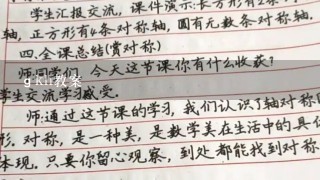 学生汇报交流，课件演示：长方形有2条
轴，正方形有4条对称轴，圆有无数条对称轴.
四.全课总结(赏对称)
师:同学们，今天这节课你有什么收获?
g kIr教案
学生交流学习感受.
师:通过这节课的学习，我们认识了轴对称
形.对称，是一种美，是数学美在生活中的具
体现.只要你留心观察，到处都能找到对称